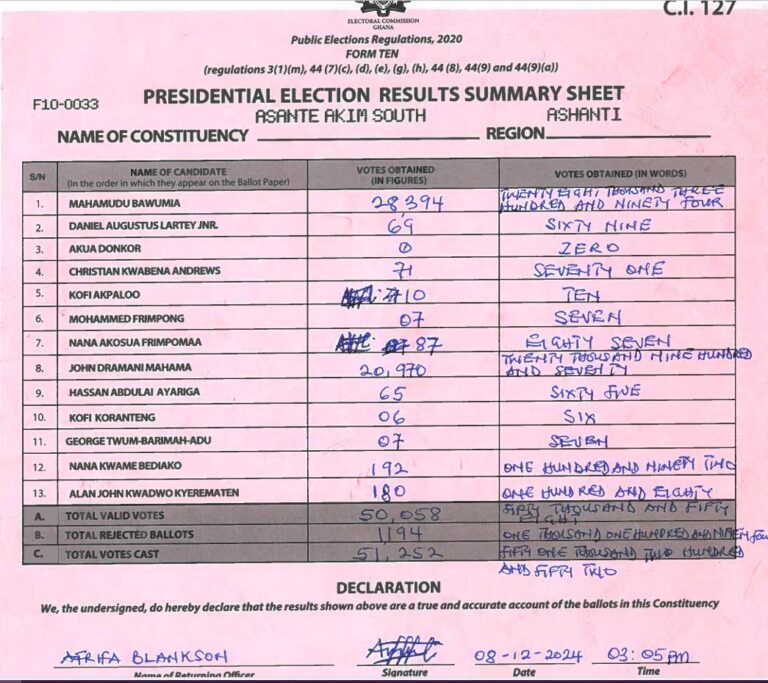 C.I. 127
ELECTORAL COMMISSION
GHANA
Public Elections Regulations, 2020
FORM TEN
(regulations 3(1)(m), 44 (7)(c), (d), (e), (g), (h), 44 (8), 44(9) and 44(9)(a))
F10-0033
PRESIDENTIAL ELECTION RESULTS SUMMARY SHEET
NAME OF CONSTITUENCY ASANTE AKIM SOUTH REGION ASHANTI
S/N NAME OF CANDIDATE (In the order in which they appear on the Ballot Paper) VOTES OBTAINED (IN FIGURES) VOTES OBTAINED (IN WORDS)
1. MAHAMUDU BAWUMIA 28,394 TWENTY EIGHT THOUSAND THREE HUNDRED AND NINETY FOUR
2. DANIEL AUGUSTUS LARTEY JNR. 69 SIXTY NINE
3. AKUA DONKOR 0 ZERO
4. CHRISTIAN KWABENA ANDREWS 71 SEVENTY ONE
5. KOFI AKPALOO 10 TEN
6. MOHAMMED FRIMPONG 07 SEVEN
7. NANA AKOSUA FRIMPOMAA 87 EIGHTY SEVEN
8. JOHN DRAMANI MAHAMA 20,970 TWENTY THOUSAND NINE HUNDRED AND SEVENTY
9. HASSAN ABDULAI AYARIGA 65 SIXTY FIVE
10. KOFI KORANTENG 06 SIX
11. GEORGE TWUM-BARIMAH-ADU 07 SEVEN
12. NANA KWAME BEDIAKO 192 ONE HUNDRED AND NINETY TWO
13. ALAN JOHN KWADWO KYEREMATEN 180 ONE HUNDRED AND EIGHTY
A. TOTAL VALID VOTES 50,058 FIFTY THOUSAND AND FIFTY EIGHT
B. TOTAL REJECTED BALLOTS 1194 ONE THOUSAND ONE HUNDRED AND NINETY FOUR
C. TOTAL VOTES CAST 51,252 FIFTY ONE THOUSAND TWO HUNDRED AND FIFTY TWO
DECLARATION
We, the undersigned, do hereby declare that the results shown above are a true and accurate account of the ballots in this Constituency
AFRIFA BLANKSON 08-12-2024 03:05PM
Name of Returning Officer Signature Date Time